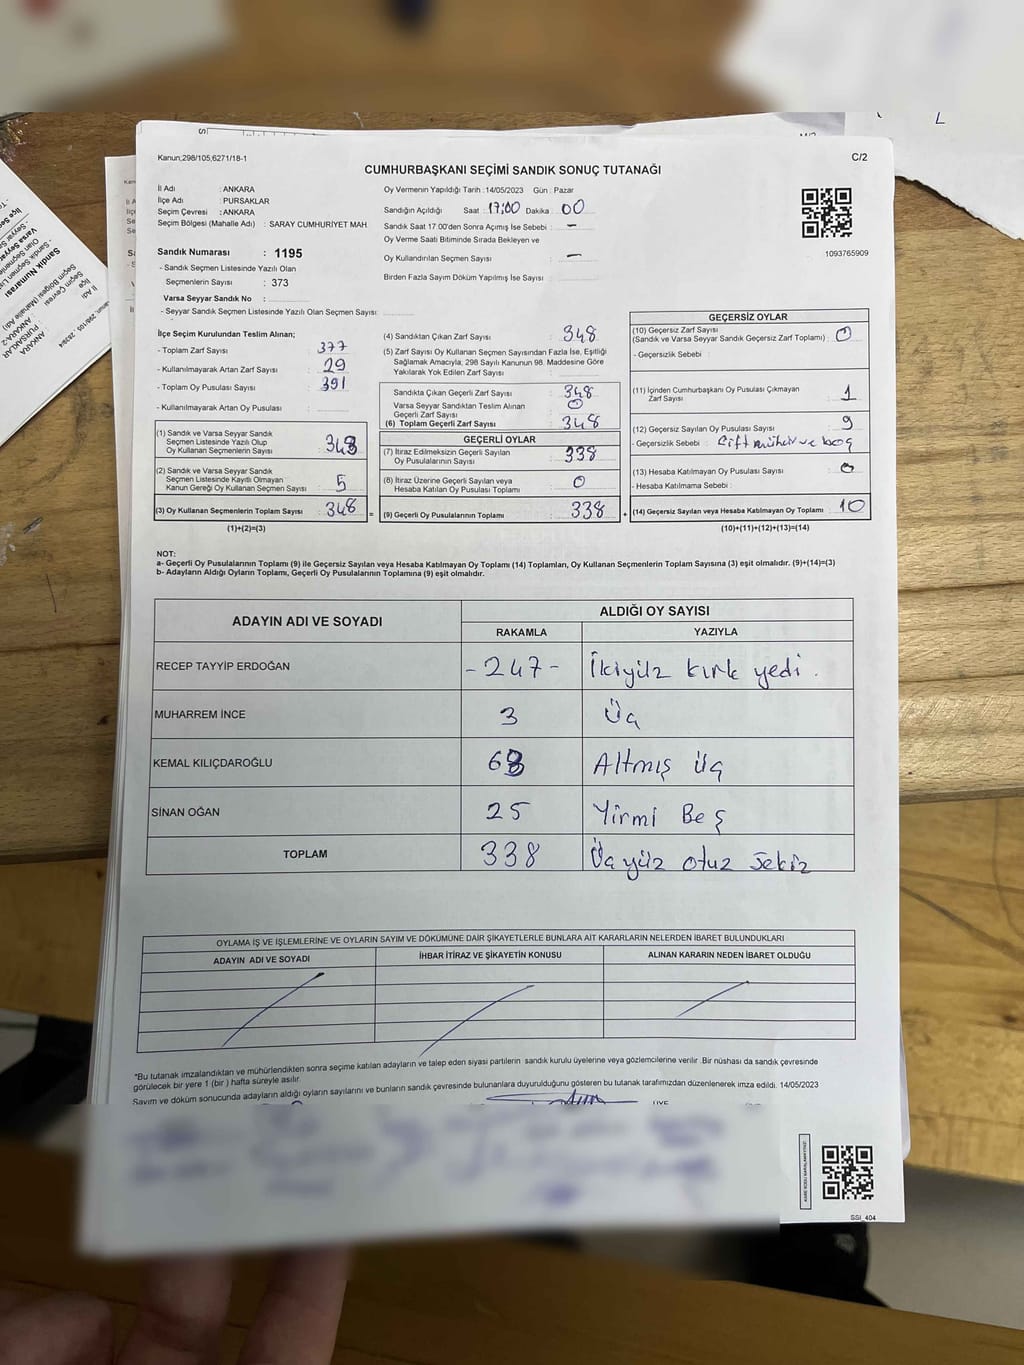 Kanun;298/105,6271/18-1
C/2
CUMHURBAŞKANI SEÇİMİ SANDIK SONUÇ TUTANAĞI
İl Adı : ANKARA
İlçe Adı : PURSAKLAR
Seçim Çevresi : ANKARA
Seçim Bölgesi (Mahalle Adı) : SARAY CUMHURİYET MAH
Sandık Numarası : 1195
- Sandık Seçmen Listesinde Yazılı Olan
Seçmenlerin Sayısı : 373
Varsa Seyyar Sandık No :
- Seyyar Sandık Seçmen Listesinde Yazılı Olan Seçmen Sayısı :
Oy Vermenin Yapıldığı Tarih :14/05/2023 Gün : Pazar
Sandığın Açıldığı Saat : 17:00 Dakika : 00
Sandık Saat 17.00'den Sonra Açımış İse Sebebi : –
Oy Verme Saati Bitiminde Sırada Bekleyen ve
Oy Kullandırılan Seçmen Sayısı : –
Birden Fazla Sayım Döküm Yapılmış İse Sayısı :
1093765909
İlçe Seçim Kurulundan Teslim Alınan;
- Toplam Zarf Sayısı : 377
- Kullanılmayarak Artan Zarf Sayısı : 29
- Toplam Oy Pusulası Sayısı : 391
- Kullanılmayarak Artan Oy Pusulası :
(1) Sandık ve Varsa Seyyar Sandık
Seçmen Listesinde Yazılı Olup
Oy Kullanan Seçmenlerin Sayısı : 343
(2) Sandık ve Varsa Seyyar Sandık
Seçmen Listesinde Kayıtlı Olmayan
Kanun Gereği Oy Kullanan Seçmen Sayısı : 5
(3) Oy Kullanan Seçmenlerin Toplam Sayısı : 348
(1)+(2)=(3)
(4) Sandıktan Çıkan Zarf Sayısı : 348
(5) Zarf Sayısı Oy Kullanan Seçmen Sayısından Fazla İse, Eşitliği
Sağlamak Amacıyla; 298 Sayılı Kanunun 98. Maddesine Göre
Yakılarak Yok Edilen Zarf Sayısı :
Sandıkta Çıkan Geçerli Zarf Sayısı : 348
Varsa Seyyar Sandıktan Teslim Alınan
Geçerli Zarf Sayısı : 0
(6) Toplam Geçerli Zarf Sayısı : 348
GEÇERLİ OYLAR
(7) İtiraz Edilmeksizin Geçerli Sayılan
Oy Pusulalarının Sayısı : 338
(8) İtiraz Üzerine Geçerli Sayılan veya
Hesaba Katılan Oy Pusulası Toplamı : 0
= (9) Geçerli Oy Pusulalarının Toplamı : 338 +
GEÇERSİZ OYLAR
(10) Geçersiz Zarf Sayısı
(Sandık ve Varsa Seyyar Sandık Geçersiz Zarf Toplamı) : 0
- Geçersizlik Sebebi :
(11) İçinden Cumhurbaşkanı Oy Pusulası Çıkmayan
Zarf Sayısı : 1
(12) Geçersiz Sayılan Oy Pusulası Sayısı : 9
- Geçersizlik Sebebi : Çift mühür ve boş
(13) Hesaba Katılmayan Oy Pusulası Sayısı : 0
- Hesaba Katılmama Sebebi :
(14) Geçersiz Sayılan veya Hesaba Katılmayan Oy Toplamı : 10
(10)+(11)+(12)+(13)=(14)
NOT:
a- Geçerli Oy Pusulalarının Toplamı (9) ile Geçersiz Sayılan veya Hesaba Katılmayan Oy Toplamı (14) Toplamları, Oy Kullanan Seçmenlerin Toplam Sayısına (3) eşit olmalıdır. (9)+(14)=(3)
b- Adayların Aldığı Oyların Toplamı, Geçerli Oy Pusulalarının Toplamına (9) eşit olmalıdır.
ADAYIN ADI VE SOYADI
ALDIĞI OY SAYISI
RAKAMLA YAZIYLA
RECEP TAYYİP ERDOĞAN -247- İkiyüz kırk yedi.
MUHARREM İNCE 3 Üç
KEMAL KILIÇDAROĞLU 63 Altmış üç
SİNAN OĞAN 25 Yirmi Beş
TOPLAM 338 Üçyüz otuz sekiz
OYLAMA İŞ VE İŞLEMLERİNE VE OYLARIN SAYIM VE DÖKÜMÜNE DAİR ŞİKAYETLERLE BUNLARA AİT KARARLARIN NELERDEN İBARET BULUNDUKLARI
ADAYIN ADI VE SOYADI İHBAR İTİRAZ VE ŞİKAYETİN KONUSU ALINAN KARARIN NEDEN İBARET OLDUĞU
*Bu tutanak imzalandıktan ve mühürlendikten sonra seçime katılan adayların ve talep eden siyasi partilerin sandık kurulu üyelerine veya gözlemcilerine verilir .Bir nüshası da sandık çevresinde
görülecek bir yere 1 (bir ) hafta süreyle asılır.
Sayım ve döküm sonucunda adayların aldığı oyların sayılarını ve bunların sandık çevresinde bulunanlara duyurulduğunu gösteren bu tutanak tarafımızdan düzenlenerek imza edildi. 14/05/2023
SSI_404